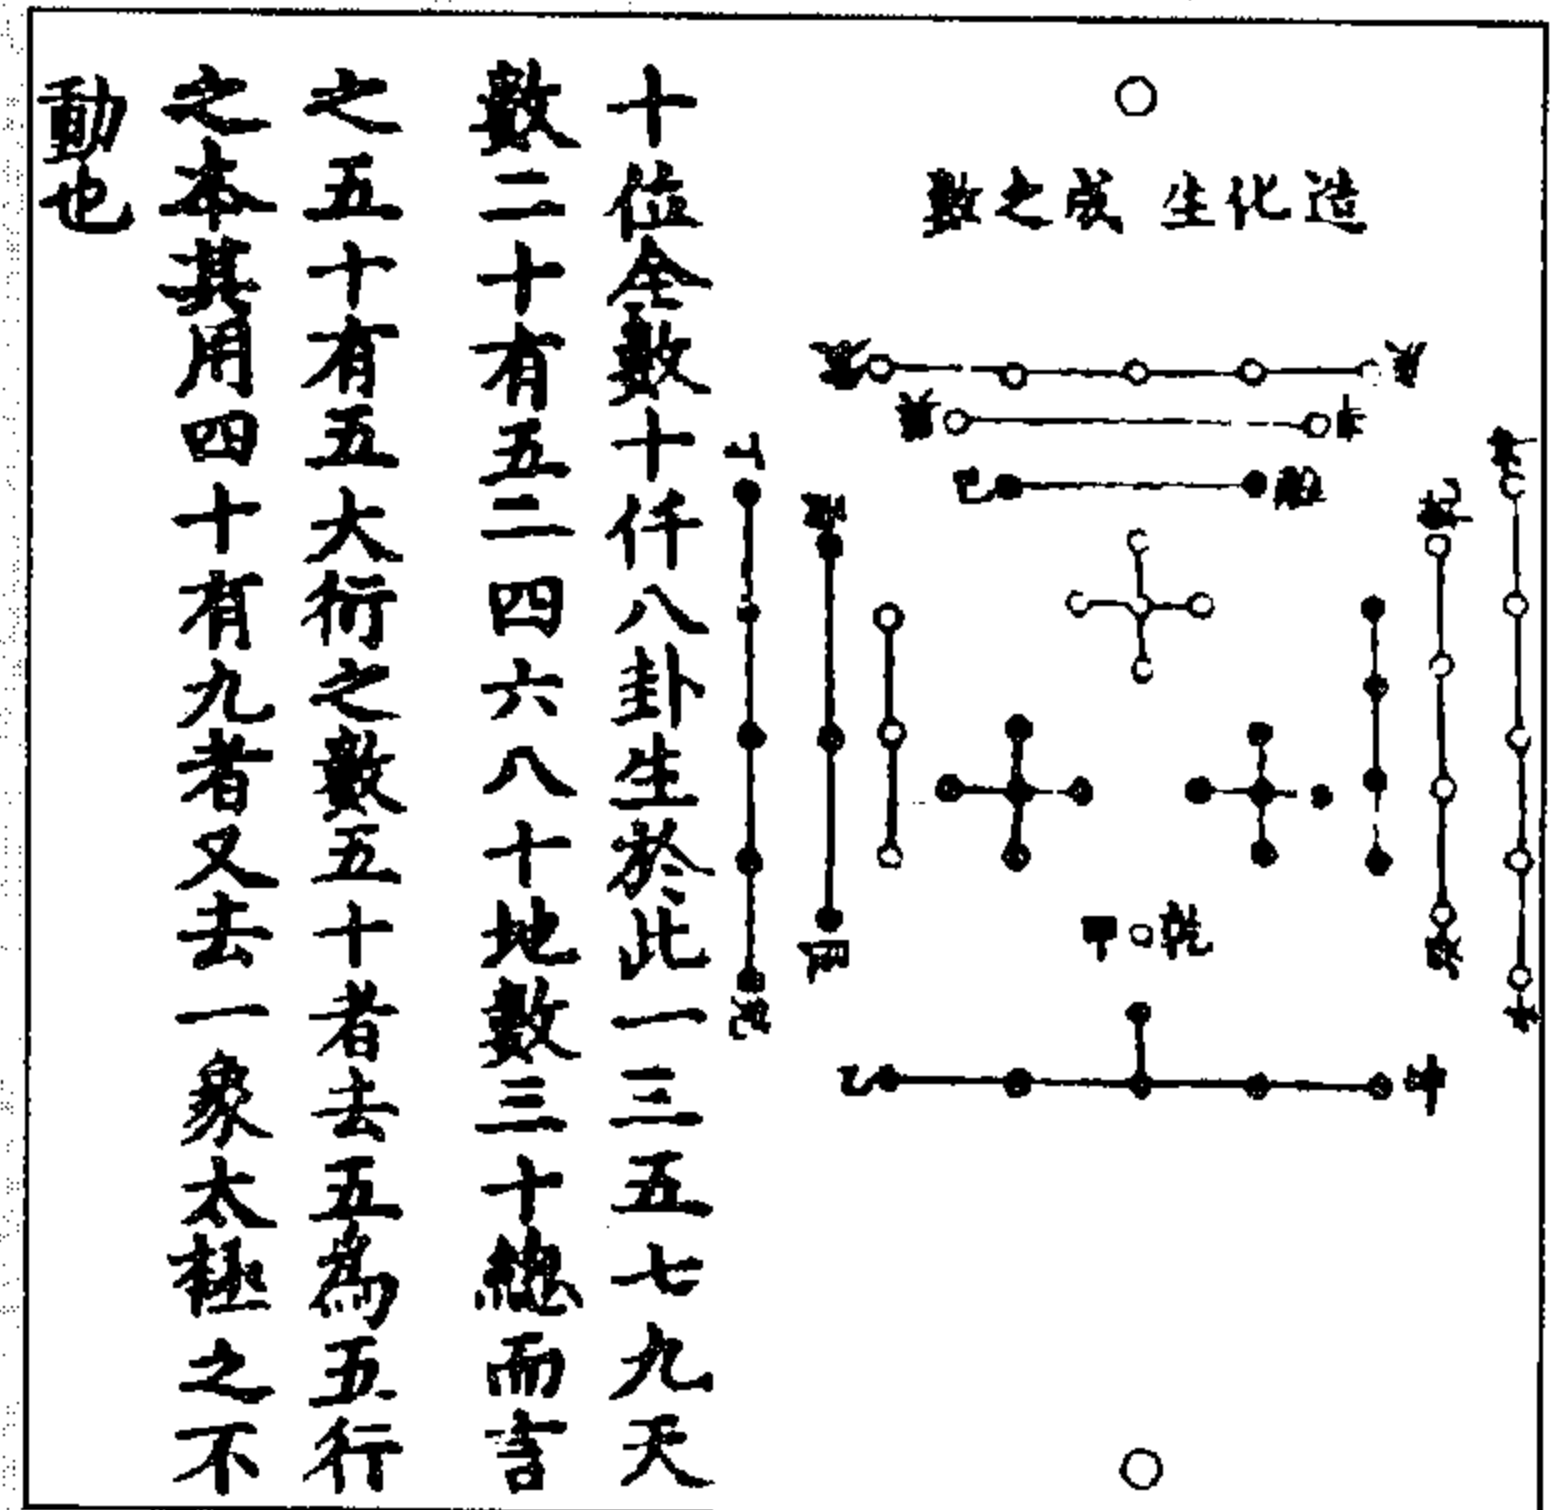 造化生成之數
乾
甲
坤
乙
艮
丁
兌
己
十位全數十仟八卦生於此一三五七九天
數二十有五二四六八十地數三十總而言
之五十有五大衍之數五十者去五為五行
之本其用四十有九者又去一象太極之不
動也